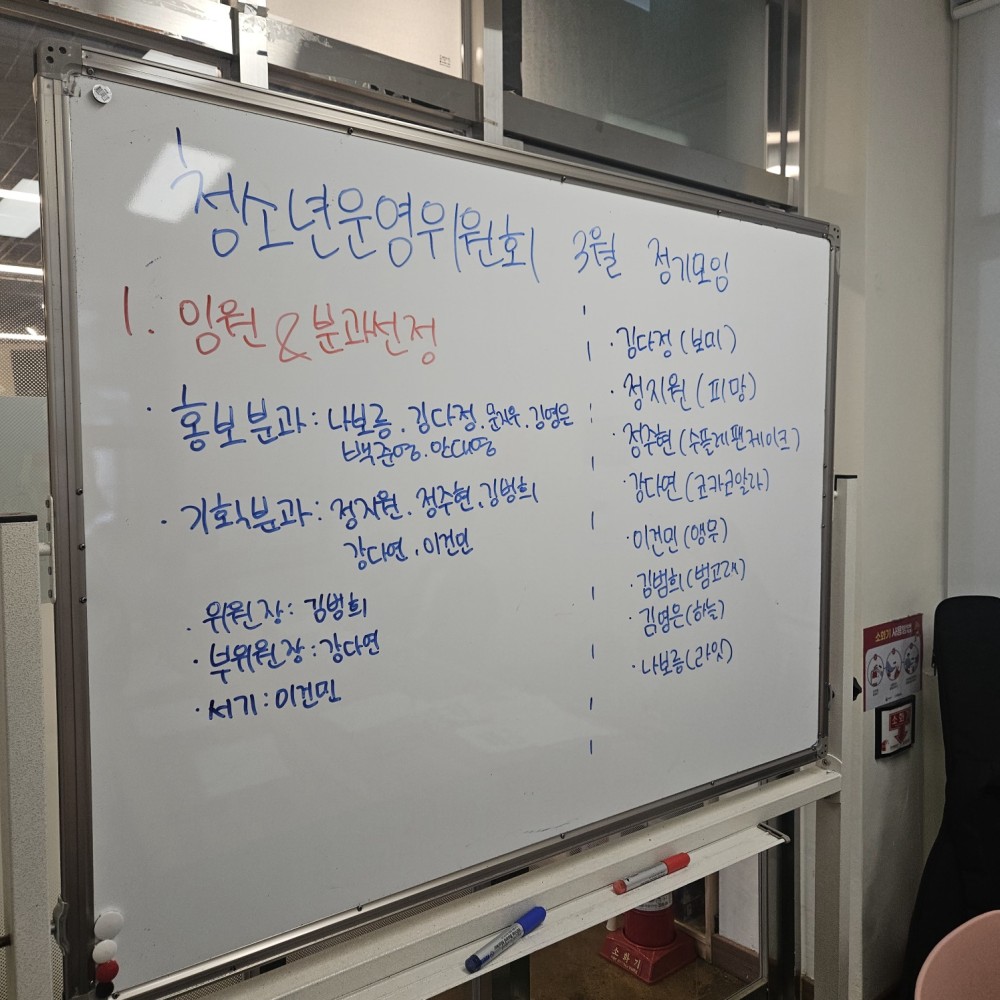 청소년운영위원회 3월 정기모임
1. 임원 & 분과선정
· 홍보분과 : 나보름 . 김다정 . 문지유 . 김영은
백준영 . 안대영
· 기획분과 : 정지원 . 정주현 . 김범희
강다연 . 이건민
· 위원장 : 김범희
· 부위원장 : 강다연
· 서기 : 이건민
· 김다정 (보미)
· 정지원 (피망)
· 정주현 (수플레팬케이크)
· 강다연 (코카코알라)
· 이건민 (앵무)
· 김범희 (범고래)
· 김영은 (하늘)
· 나보름 (라잇)
소화기 사용방법
소화
소화기